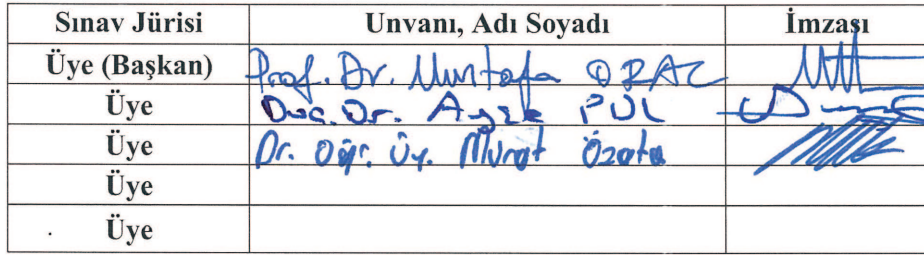 Sınav Jürisi Unvanı, Adı Soyadı İmzası
Üye (Başkan) Prof. Dr. Mustafa ORAL
Üye Doç. Dr. Ayşe PUL
Üye Dr. Öğr. Üy. Murat Özata
Üye
Üye